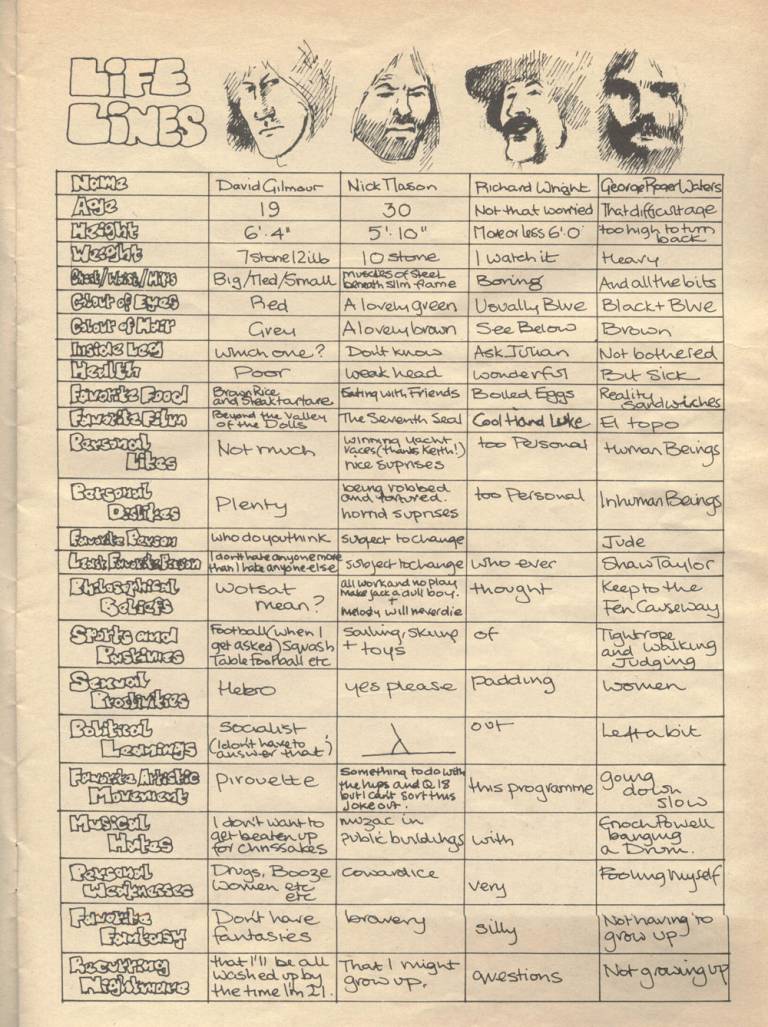 LIFE
LINES
Name David Gilmour Nick Mason Richard Wright George Roger Waters
Age 19 30 Not that worried That difficult age
Height 6'.4" 5'.10" More or less 6'.0" too high to turn
back
Weight 7 stone 12½lb 10 stone I watch it Heavy
Chest/Waist/Hips Big/Med/Small muscles of steel
beneath slim flame Boring And all the bits
Colour of Eyes Red A lovely green Usually Blue Black + Blue
Colour of Hair Grey A lovely brown See Below Brown
Inside Leg which one? Don't know Ask Julian Not bothered
Health Poor weak head wonderful But Sick
Favorite Food Brown Rice
and Steak tartare Eating with Friends Boiled Eggs Reality
Sandwiches
Favorite Film Beyond the Valley
of the Dolls The Seventh Seal Cool Hand Luke El topo
Personal
Likes Not much winning yacht
races (thanks Keith!)
nice suprises too Personal Human Beings
Personal
Dislikes Plenty being robbed
and tortured.
horrid suprises too Personal Inhuman Beings
Favorite Person who do you think subject to change Jude
Least Favorite Person I don't hate anyone more
than I hate anyone else subject to change who ever Shaw Taylor
Philosophical
Beliefs Wotsat
mean? all work and no play
make jack a dull boy.
+
melody will never die thought Keep to the
Fen Causeway
Sports and
Pastimes Football (when I
get asked) Squash
Table Football etc Sailing, skiing
+ toys of Tightrope
and Walking
Judging
Sexual
Proclivities Hetro yes please padding Women
Political
Leanings Socialist
(I don't have to
answer that) out Left a bit
Favorite Artistic
Movement Pirouette Something to do with
the hips and Q 18
but I can't sort this
joke out. this programme going
down
slow
Musical
Hates I don't want to
get beaten up
for chrissakes muzac in
public buildings with Enoch Powell
banging
a Drum.
Personal
Weaknesses Drugs, Booze
Women etc
etc cowardice very Fooling Myself
Favorite
Fantasy Don't have
fantasies bravery silly Not having to
grow up
Recurring
Nightmare that I'll be all
washed up by
the time I'm 21. That I might
grow up. questions Not growing up